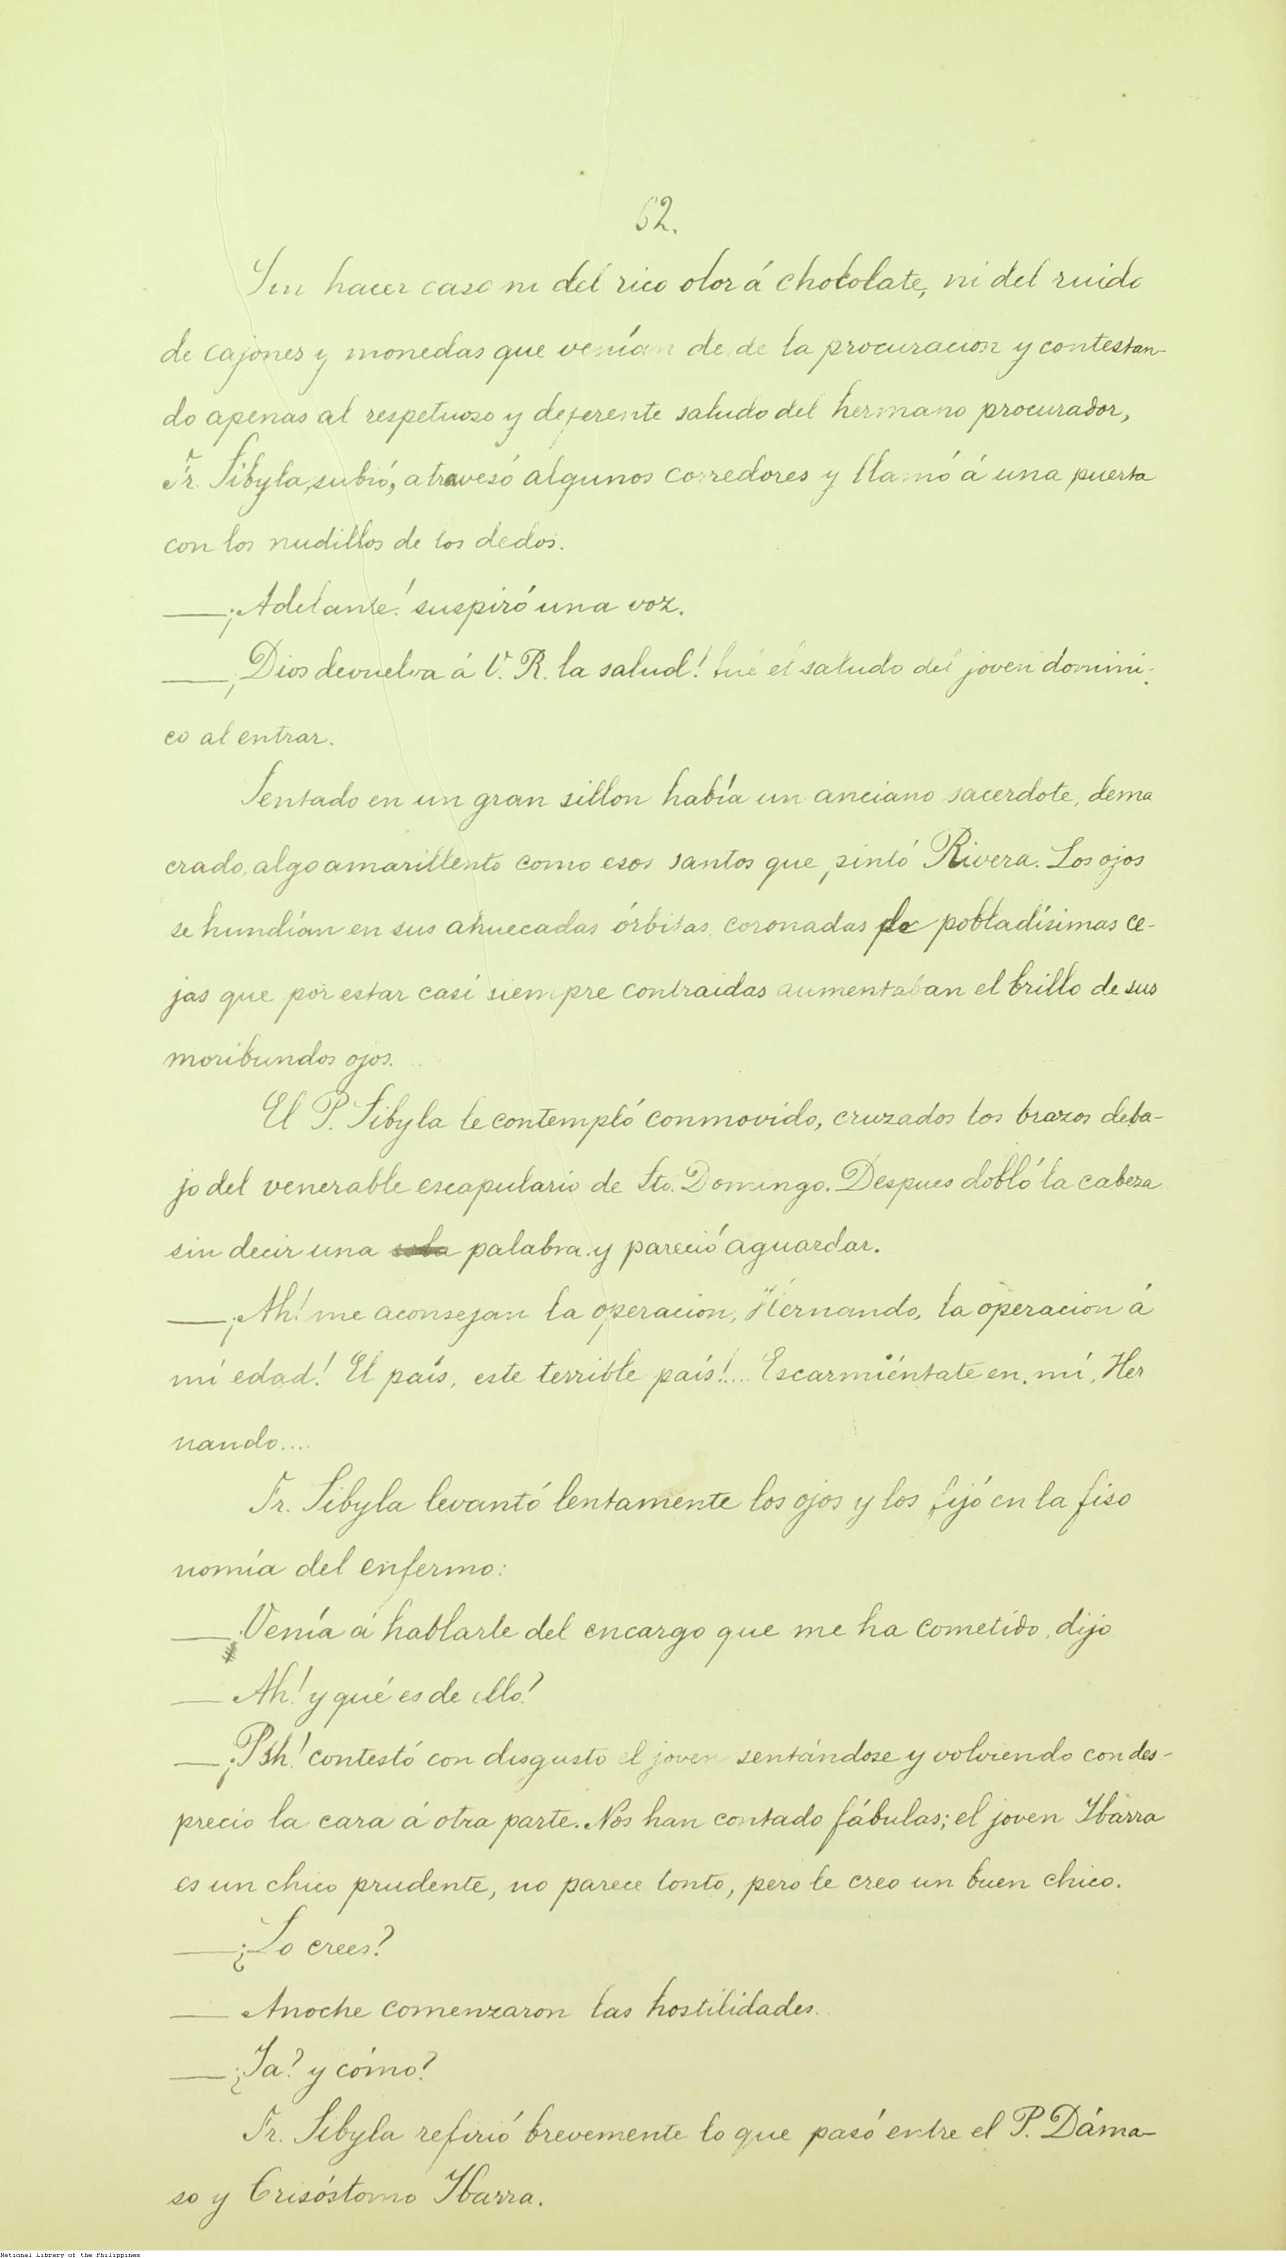 62.
Sin hacer caso ni del rico olor á chocolate, ni del ruido
de cajones y monedas que venían de de la procuracion y contestan-
do apenas al respetuoso y deferente saludo del hermano procurador,
Fr. Sibyla, subió, atravesó algunos corredores y llamó á una puerta
con los nudillos de los dedos.
—¡Adelante! suspiró una voz.
—¡Dios devuelva á V. R. la salud! fué el saludo del joven domini-
co al entrar.
Sentado en un gran sillon había un anciano sacerdote, dema
crado, algo amarillento como esos santos que pintó Rivera. Los ojos
se hundían en sus ahuecadas órbitas, coronadas de pobladísimas ce-
jas que por estar casi siempre contraidas aumentaban el brillo de sus
moribundos ojos.
El P. Sibyla le contempló conmovido, cruzados los brazos deba-
jo del venerable escapulario de Sto. Domingo. Despues dobló la cabeza
sin decir una sola palabra y pareció aguardar.
—¡Ah! me aconsejan la operacion, Hernando, la operacion á
mi edad! El país, este terrible país!.... Escarmiéntate en mí, Her
nando....
Fr. Sibyla levantó lentamente los ojos y los fijó en la fiso
nomía del enfermo:
—Venía á hablarle del encargo que me ha cometido, dijo
—Ah! y qué es de ello?
—¡Psh! contestó con disgusto el joven sentándose y volviendo con des-
precio la cara á otra parte. Nos han contado fábulas; el joven Ibarra
es un chico prudente, no parece tonto, pero le creo un buen chico.
—¿Lo crees?
—Anoche comenzaron las hostilidades.
—¿Ya? y cómo?
Fr. Sibyla refirió brevemente lo que pasó entre el P. Dáma-
so y Crisóstomo Ibarra.
National Library of the Philippines